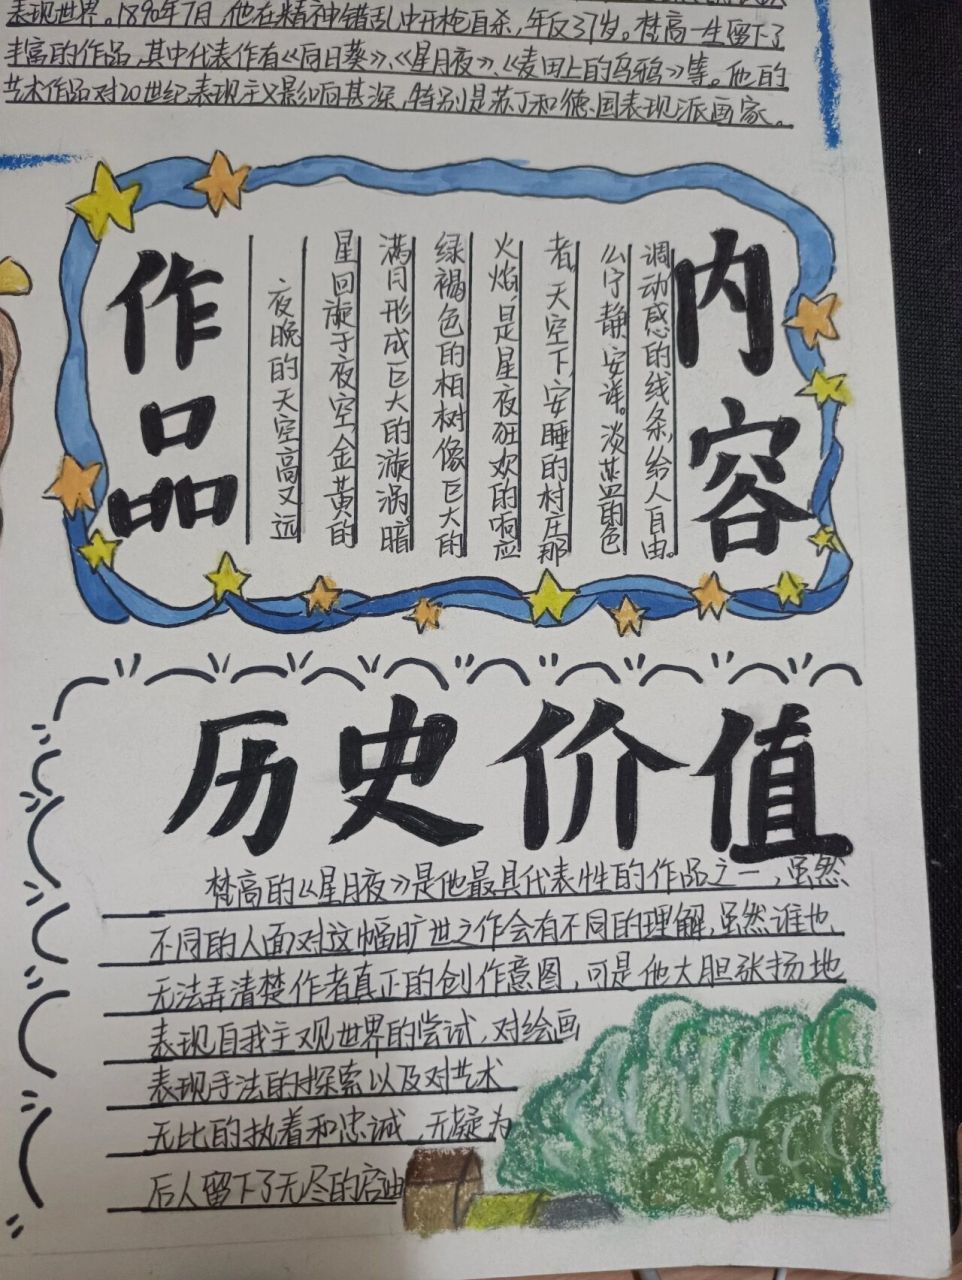 表现世界。1890年7月,他在精神错乱中开枪自杀,年仅37岁。梵高一生留下了
丰富的作品,其中代表作有《向日葵》、《星月夜》、《麦田上的乌鸦》等。他的
艺术作品对20世纪表现主义影响甚深,特别是苏丁和德国表现派画家。
作品
内容
夜晚的天空高又远
星回漩于夜空,金黄的
满月形成巨大的漩涡,暗
绿褐色的柏树像巨大的
火焰,是星夜狂欢的响应
者。天空下,安睡的村庄那
么宁静、安详。淡蓝的色
调动感的线条,给人自由。
历史价值
梵高的《星月夜》是他最具代表性的作品之一,虽然
不同的人面对这幅旷世之作会有不同的理解,虽然谁也
无法弄清楚作者真正的创作意图,可是他大胆张扬地
表现自我主观世界的尝试,对绘画
表现手法的探索以及对艺术
无比的执着和忠诚,无疑为
后人留下了无尽的启迪